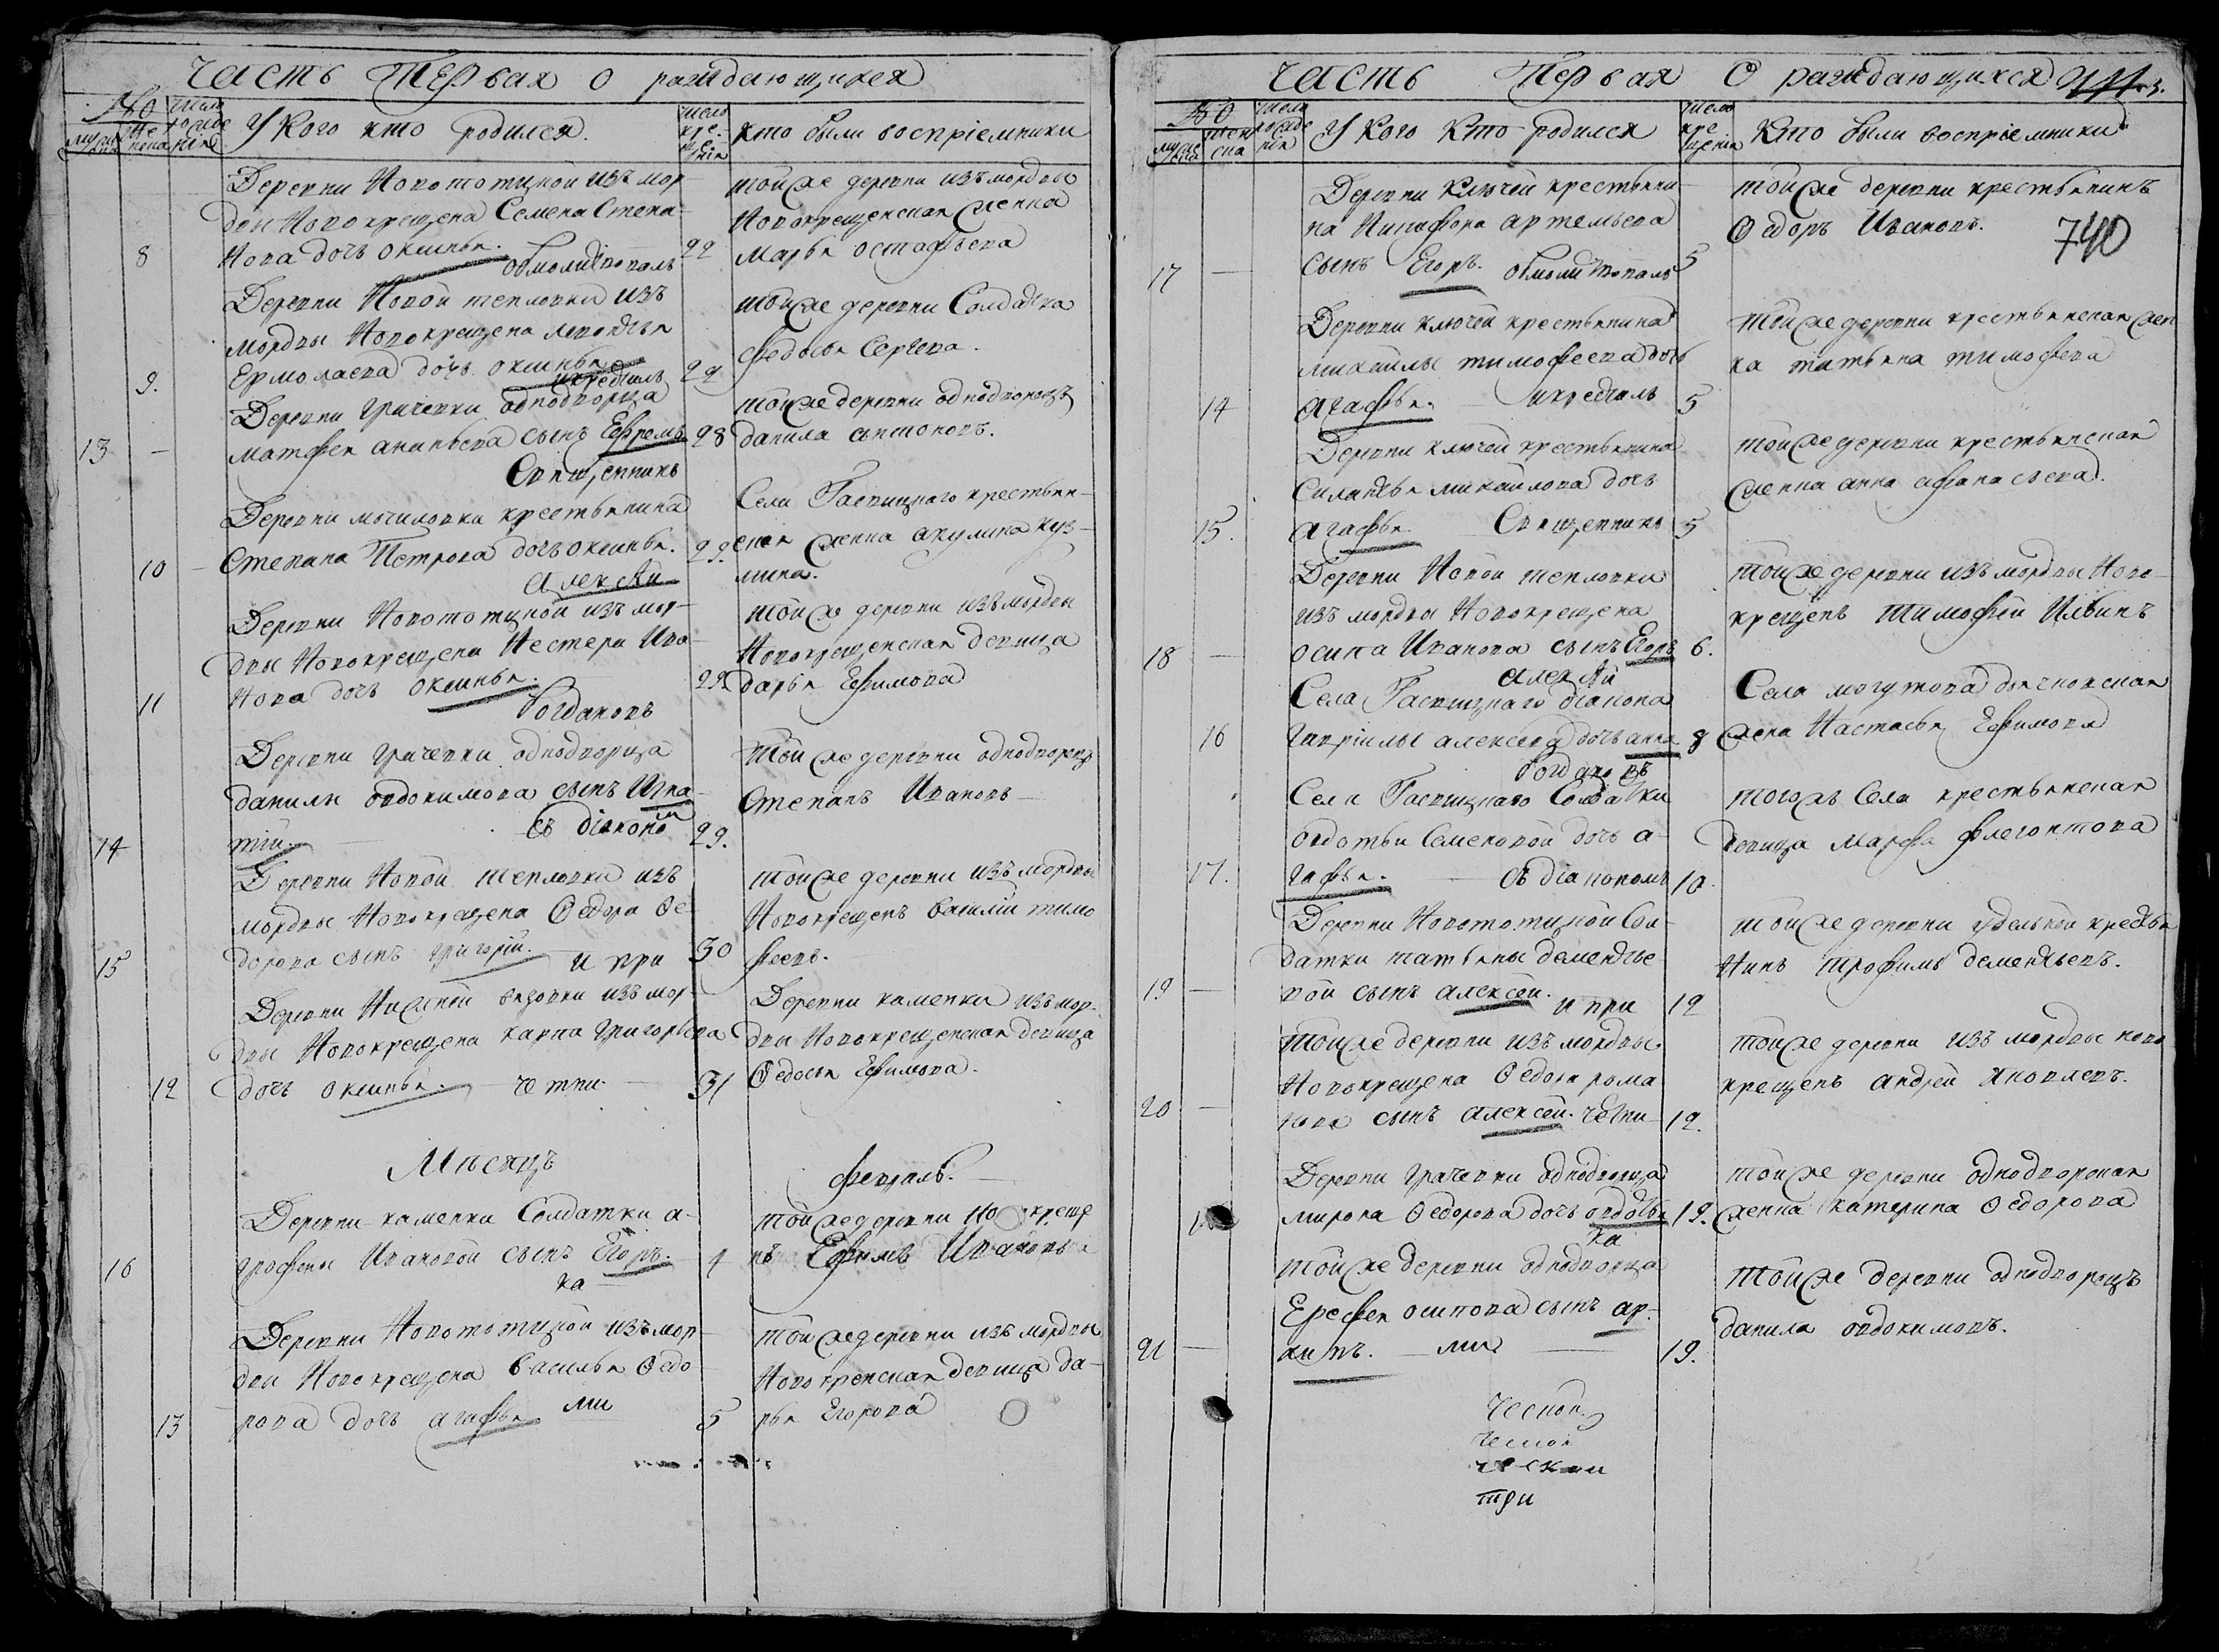 Часть Первая о раждающихся
№
муж
жена
Число рожде нія
У Кого кто родился.
число кре- ще- нія
кто были воспріемники
Деревни Новотоцкой изъ мор-
двы Новокрещена Семена Степа-
8 нова дочь Оксинья. 22
обмолитвовалъ
той же деревни изъ мордвы
Новокрещенская женка
Марья Остафьева
Деревни Новой тепловки изъ
мордвы Новокрещена леонтья
9. Ермолаева дочь Оксинья 22
и крестилъ
той же деревни Солдатка
Федосья Сергева.
Деревни Грачевки однодворца
13 — матфея ананьева сынъ Ефремъ 28
Священникъ
той же деревни однодворецъ
данила антоновъ.
Деревни могиловки крестьянина
10 Степана Петрова дочь Оксинья. 29.
алексѣй
Села Гасвицкаго крестьян-
ская женка акулина куз-
мина.
Деревни Новотоцкой изъ мор-
двы Новокрещена Нестера Ива-
11 нова дочь Оксинья. 29.
Богдановъ
той же деревни изъ мордвы
Новокрещенская девица
дарья Ефимова
Деревни Грачевки однодворца
данилы овдокимова сынъ Игна-
14 тій. 29.
съ діакономъ
той же деревни однодворецъ
Степанъ Ивановъ
Деревни Новой тепловки изъ
мордвы Новокрещена Ѳедора Ѳе-
15 дорова сынъ григорій. 30
и при
той же деревни изъ мордвы
Новокрещенъ Василій тимо
феевъ.
Деревни Нижней вязовки изъ мор-
двы Новокрещена карпа Григорьева
12 дочь Оксинья. четни. 31
Деревни каменки изъ мор-
двы Новокрещенская девица
Ѳедосья Ефимова.
Мѣсяцъ февраль.
Деревни каменки Солдатки а-
16 грофены Ивановой сынъ Егоръ. 4
ка
той же деревни но крещ
нъ Ефимъ Ивановъ
Деревни Новотоцкой изъ мор-
двы Новокрещена Василья Ѳедо
13 рова дочь агафья 5
ми
той же деревни изъ мордвы
Новокренская девица да-
рья Егорова
Часть Первая О раждающихся
№
муже
жена
Числа рожде нія
У Кого Кто родился
Число кре щенія
Кто были воспріемники
740
Деревни Ключей крестьяни-
на Никифора артемьева
17 — сынъ Егоръ. обмолитвовалъ 5
той же деревни крестьянинъ
Ѳедоръ Ивановъ.
Деревни Ключей крестьянина
михайлы тимофеева дочь
14 агафья. и крестилъ 5
той же деревни крестьянская жен
ка татьяна тимофева
Деревни Ключей крестьянина
Силантья михайлова дочь
15. агафья. Священникъ 5
той же деревни крестьянская
женка анна афанасьева.
Деревни Новой тепловки
изъ мордвы Новокрещена
18 — осипа Иванова сынъ Егоръ 6.
алексѣй
той же деревни изъ мордвы Ново-
крещенъ Тимофей Ильинъ
Села Гасвицкаго діакона
16 гавріилы алексева дочь анна 8
Богдановъ
Села могутова дьячковская
жена Настасья Ефимова
Села Гасвицкаго Солдатки
овдотьи Семеновой дочь а-
17. гафья. съ діакономъ 10.
тогожъ Села крестьянская
девица Марфа Флегонтова
Деревни Новотоцкой Сол-
датки татьяны дементье
19 — вой сынъ алексей. и при 12
той же деревни удельной крестья
нинъ трофимъ дементьевъ.
Той же деревни изъ мордвы
Новокрещена Ѳедота рома
20 — нова сынъ алексей. четни 12.
той же деревни изъ мордвы ново
крещенъ андрей Яковлевъ.
Деревни Грачевки однодворца
мирона Ѳедорова дочь овдотья 12.
ка
той же деревни однодворская
женка катерина Ѳедорова
той же деревни однодворца
Ерефея осипова сынъ ар-
21 — хипъ. ми 19.
той же деревни однодворецъ
данила овдокимовъ.
три